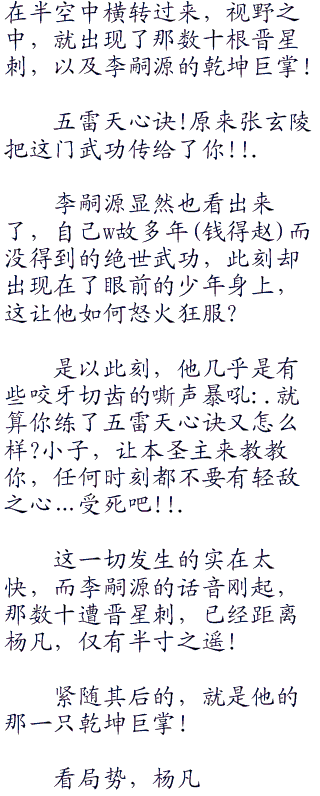 在半空中横转过来，视野之
中，就出现了那数十根晋星
刺，以及李嗣源的乾坤巨掌！
五雷天心诀！原来张玄陵
把这门武功传给了你！！．
李嗣源显然也看出来
了，自己w故多年(钱得赵)而
没得到的绝世武功，此刻却
出现在了眼前的少年身上，
这让他如何怒火狂服？
是以此刻，他几乎是有
些咬牙切齿的嘶声暴吼：．就
算你练了五雷天心诀又怎么
样？小子，让本圣主来教教
你，任何时刻都不要有轻敌
之心…受死吧！！．
这一切发生的实在太
快，而李嗣源的话音刚起，
那数十遭晋星刺，已经距离
杨凡，仅有半寸之遥！
紧随其后的，就是他的
那一只乾坤巨掌！
看局势，杨凡